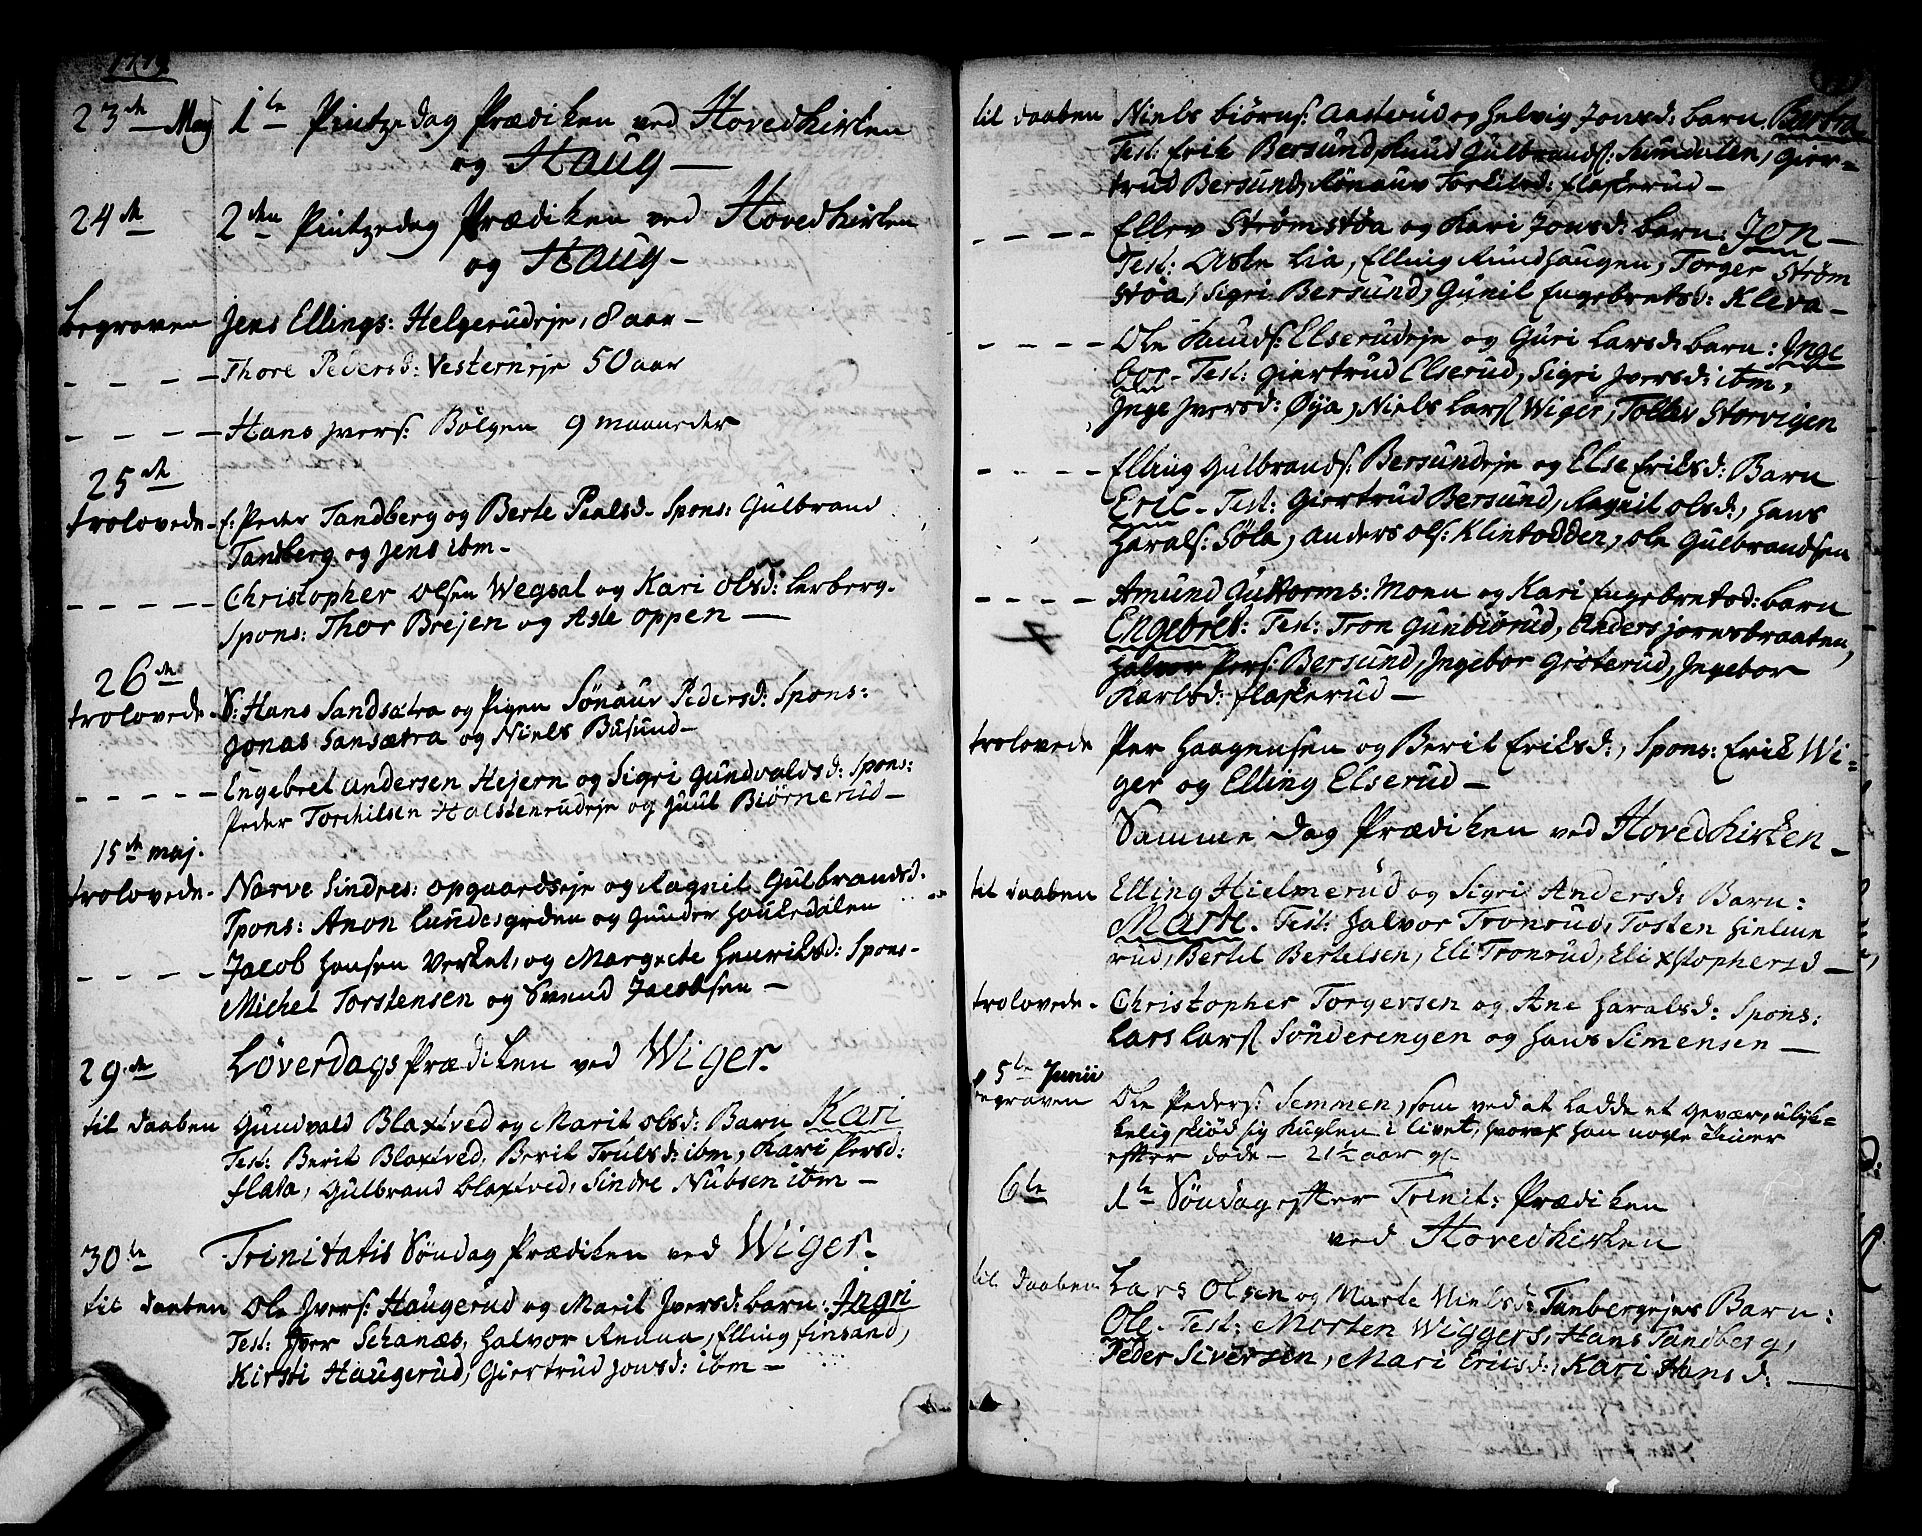 23de May 1te Pintzedag Prædiken ved Hovedkirken
og Haug —
24de 2den Pintzedag Prædiken ved Hovedkirken
og Haug —
begraven Jens Ellings: Helgerudeje, 8 aar —
— — — — Thore Pedersd: Vesterneje 50 aar
— — — — Hans Jvers: Bølgen 9 maaneder
25de
trolovede — E: Peder Tandberg og Berte Poulsd. Spons: Gulbrand
Tandberg og Jens ibm —
— — — — Christopher Olsen Wegsal og Kari Olsd: Lerberg.
Spons: Thor Brejen og Asle Oppen —
26de
trolovede — S: Hans Sandsætra og Pigen Sønauv Pedersd: Spons:
Jonas Sansætra og Niels Busund —
— — — — Engebret Andersen Hejern og Sigri Gundvaldsd: Spons:
Peder Torchilsen Halstenrudeje og Juul Biørnerud —
15de maj.
trolovede — Narve Sindres: opgaardseje og Ragnil Gulbrandsd.
Spons: Anon Lundesgrden og Gunder Haukedalen
— — — — Jacob Hansen Verket, og Margrete Henriksd: Spons —
Michel Torstensen og Svend Jacobsen —
29de Løverdags Prædiken ved Wiger.
til daaben Gundvald Blaxtved og Marit Olsd: Barn Kari
Test: Berit Blaxtved, Berit Trulsd: ibm, Kari Persd:
flata, Gulbrand Blaxtved, Sindre Nubsen ibm —
30te Trinitatis Søndag Prædiken ved Wiger.
til daaben Ole Jvers: Haugerud og Marit Jversd: barn: Jngri
Test: Jver Schanæs, Halvor Renna, Elling finsand,
Kirsti Haugerud, Giertrud Jonsd: ibm —
til daaben Niels biørns: Aasterud og Helvig Jonsd: barn. Bertra
Test: Erik Bersund, Knud Gulbrands: Semdalen, Gier-
trud Bersund, Rønauv Torkilsd: flaskerud —
— — — — Ellev Strømstøa og Kari Jonsd: barn: Jon —
Test: Asle Lia, Elling Rundhaugen, Torger Strøm
støa, Sigri Bersund, Gunil Engebretsd: Kleva —
— — — — Ole Knuds: Elserudeje og Guri Larsd: barn: Jnge
bor — Test: Giertrud Elserud, Sigri Jversd: ibm,
Jnge Jversd: Øya, Niels Lars: Wiger, Tollev Storvigen
— — — — Elling Gulbrands: Bersundeje og Else Eriksd: Barn
Eric — Test: Giertrud Bersund, Ragnil Olsd:, Hans
Harals: Søla, Anders Ols: Klintodden, Ole Gulbrandsen
— — — — Amund Guttorms: Moen og Kari Engebretsd: barn
Engebret: Test: Tron Gunbiørud, Anders Jornsbraaten,
Halvor Pers: Bersund, Jngebor Grøterud, Jngebor
Karlsd: flaskerud —
trolovede Per Haagensen og Berit Eriksd:, Spons: Erik Wi-
ger og Elling Elserud —
Samme Dag Prædiken ved Hovedkirken —
til daaben Elling Hielmerud og Sigri Andersd: Barn:
Marte. Test: Halvor Tronrud, Tosten Hielme
rud, Bertil Bertelsen, Eli Tronrud, Eli xstophersd —
trolovede — Christopher Torgersen og Ane Haralsd: Spons:
Lars Lars: Sønderengen og Hans Simensen —
5te Junii
begraven Ole Peders: Semmen, som ved at ladde et Gevær ulyk-
kelig skiød sig Kuglen i Livet, hvoraf han nogle Timer
efter døde — 21½ aar gl.
6te 1te Søndag efter Trinit: Prædiken
ved Hovedkirken
til daaben Lars Olsen og Marte Nielsd: Tanbergejes Barn:
Ole — Test: Morten Wiggers, Hans Tandberg,
Peder Siversen, Mari Ericsd:, Kari Hansd: —